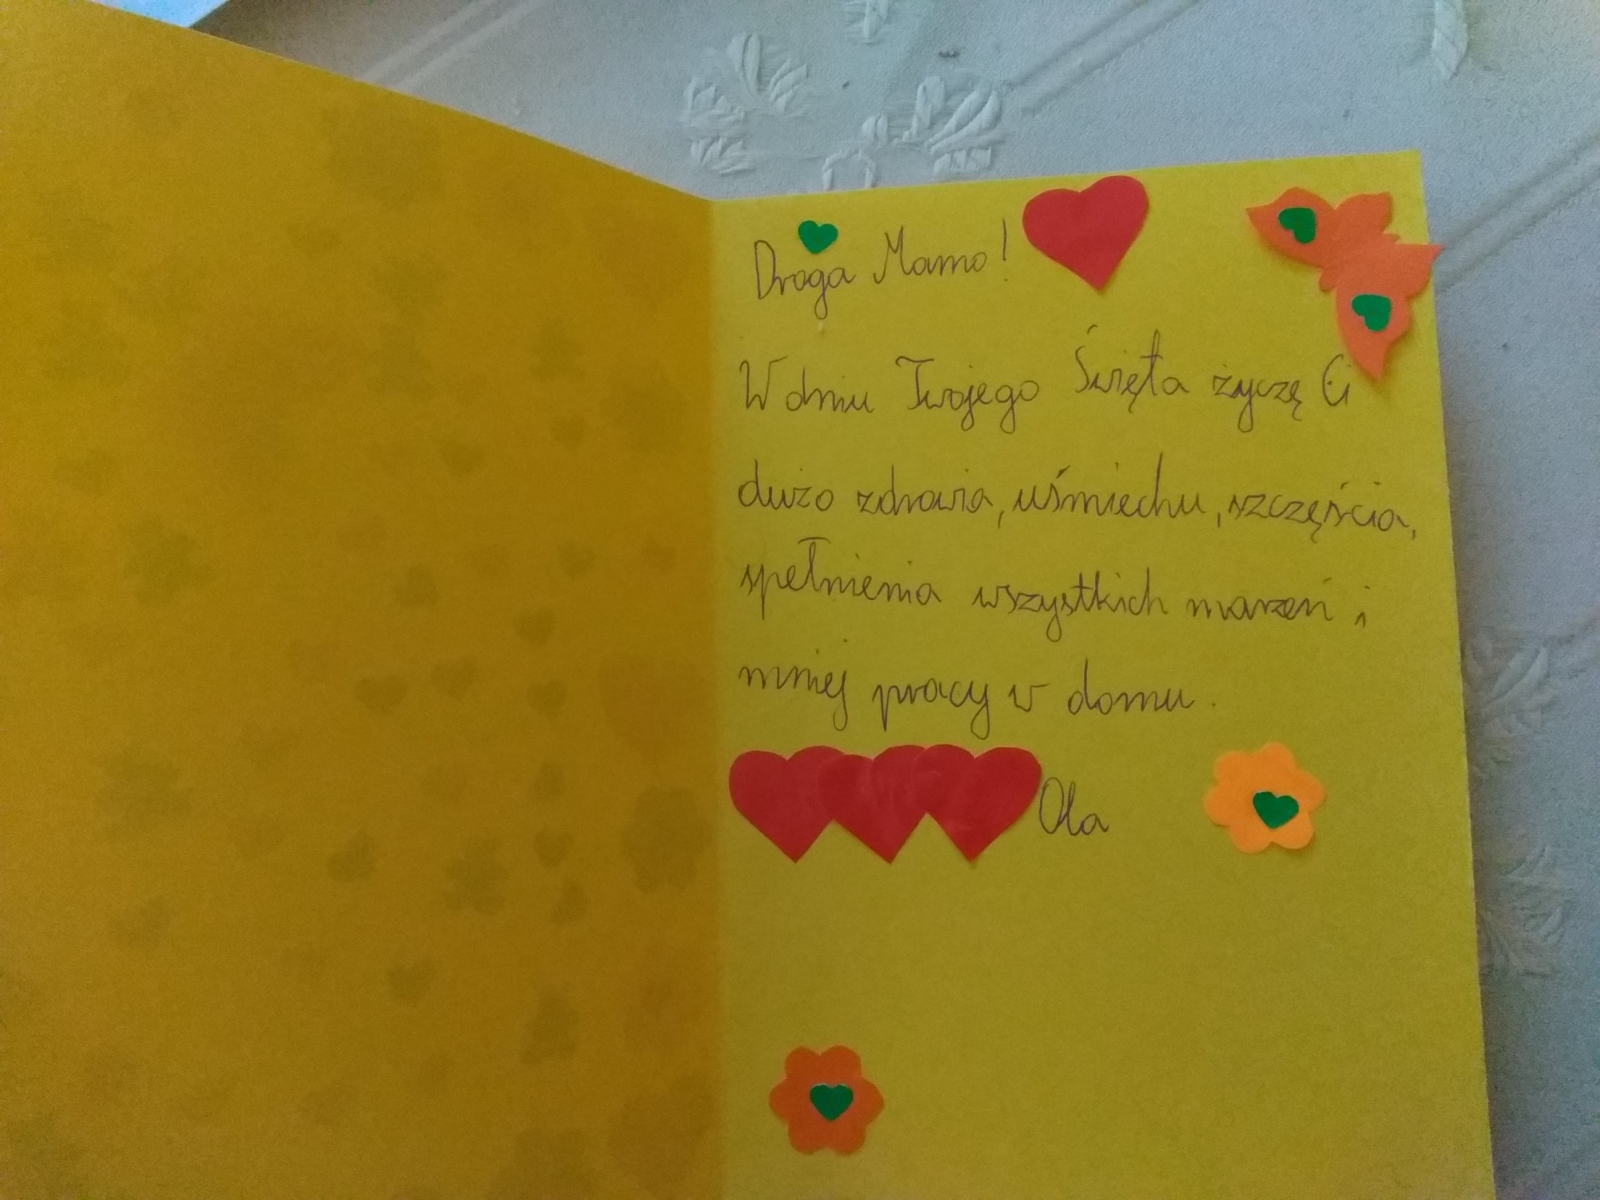 Droga Mamo!
W dniu Twojego Święta życzę Ci
dużo zdrowia, uśmiechu, szczęścia,
spełnienia wszystkich marzeń i
mniej pracy w domu.
Ola